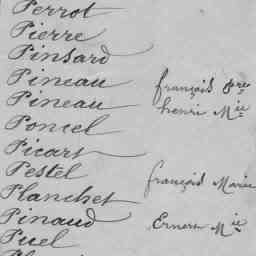 Perrot
Pierre
Pinsard
Pineau françois Pre
Pineau henri Mie
Poncel
Picart
Pestel françois Marie
Planchet
Pinaud Ernest Mie
Puel